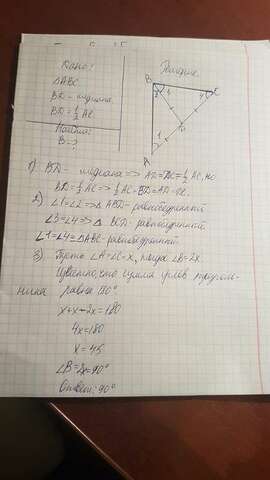 Дано:
Решение
ΔABC
BD - медиана
BD = 1/2 AC
Найти:
B - ?
B
C
D
A
1) BD - медиана => AD=DC=1/2 AC, но
BD=1/2 AC => 1/2 AC=BD=AD=DC.
2) ∠1=∠2 => Δ ABD - равнобедренный
∠3=∠4 => Δ BCD - равнобедренный.
∠1=∠4 = ΔABC - равнобедренный.
3) Пусть ∠A=∠C=x, тогда ∠B=2x.
что сумма углов треуголь-
ника равна 180°
x+x+2x=180
4x=180
x=45
∠B=2x=90°
Ответ: 90°